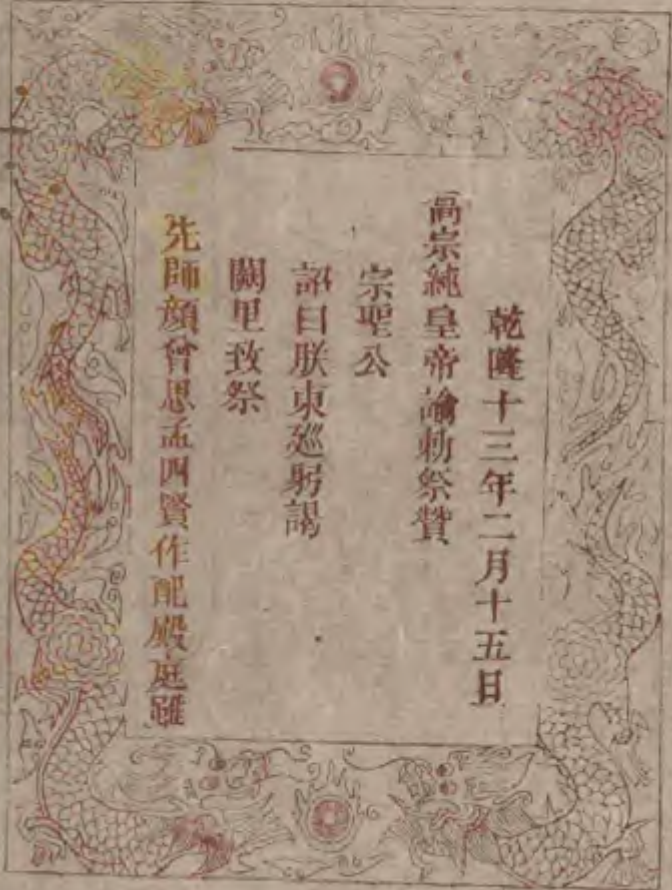 乾隆十三年二月十五日
高宗純皇帝諭勅祭贊
宗聖公
詔曰朕東廵躬謁
闕里致祭
先師顏曾思孟四賢作配殿庭雖